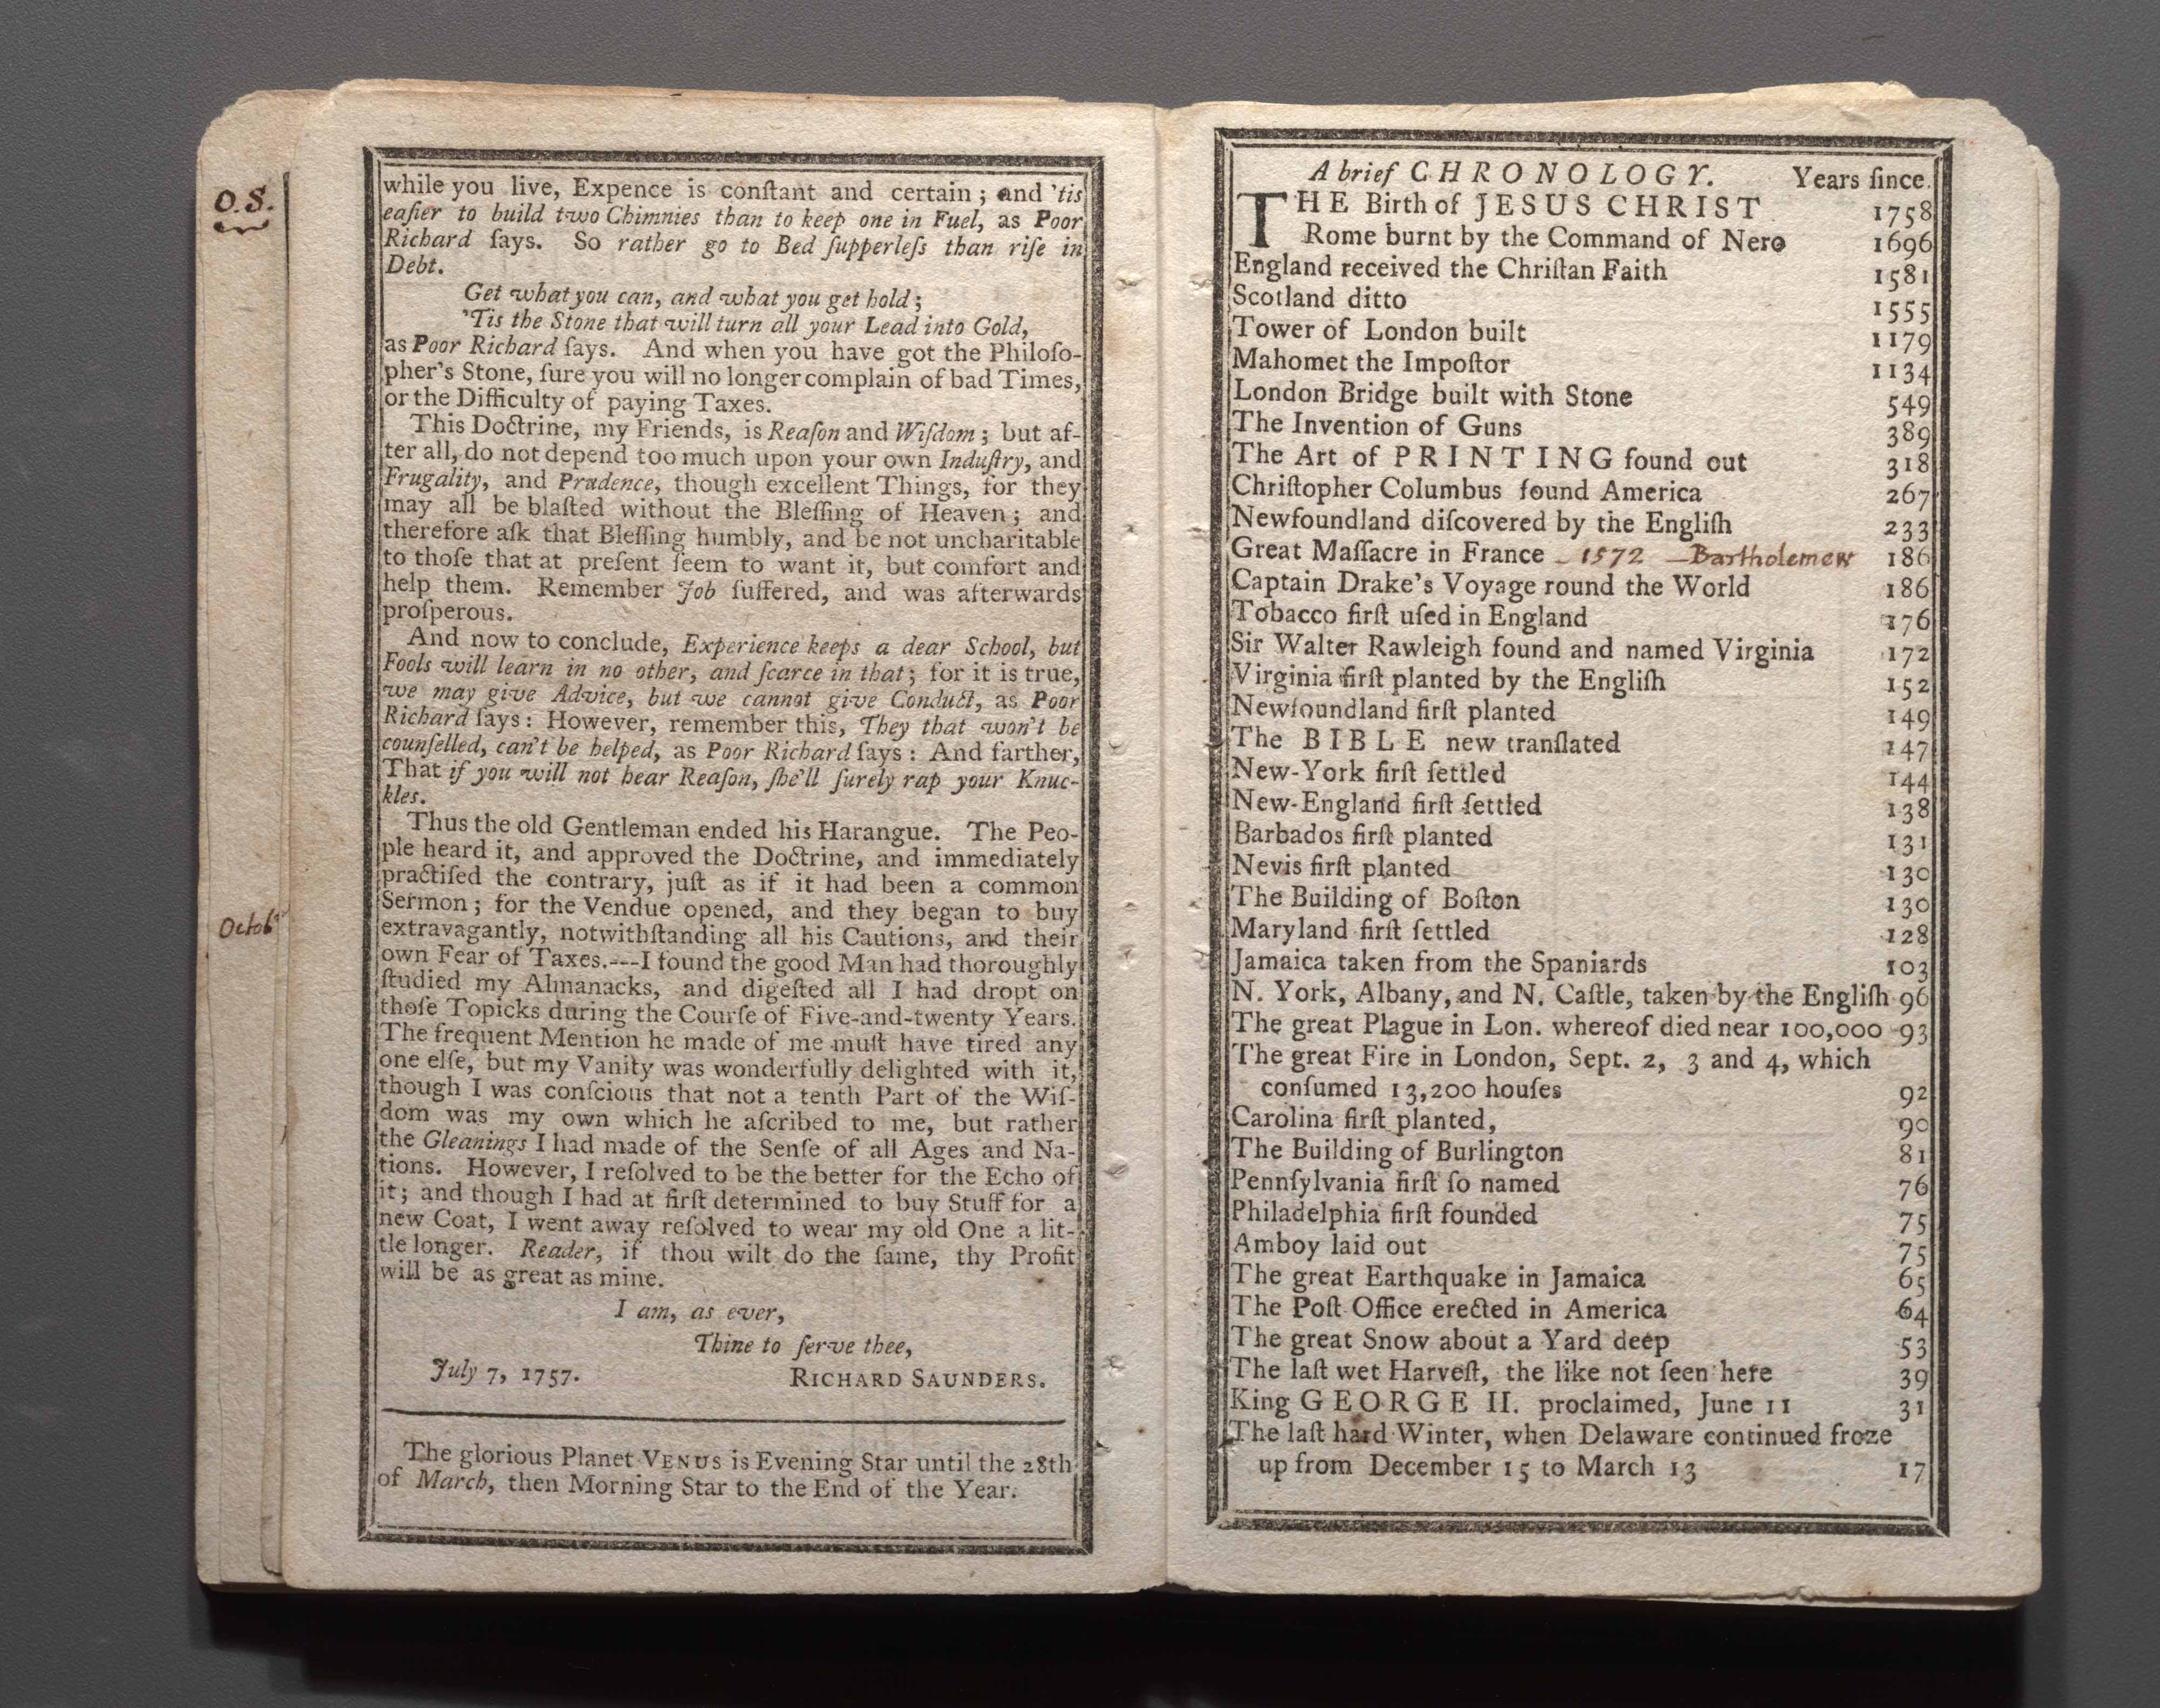 O.S.
Octobʳ
while you live, Expence is conſtant and certain; and 'tis
eaſier to build two Chimnies than to keep one in Fuel, as Poor
Richard ſays. So rather go to Bed ſupperleſs than riſe in
Debt.
Get what you can, and what you get hold;
'Tis the Stone that will turn all your Lead into Gold,
as Poor Richard ſays. And when you have got the Philoſo-
pher's Stone, ſure you will no longer complain of bad Times,
or the Difficulty of paying Taxes.
This Doctrine, my Friends, is Reaſon and Wiſdom; but af-
ter all, do not depend too much upon your own Induſtry, and
Frugality, and Prudence, though excellent Things, for they
may all be blaſted without the Bleſſing of Heaven; and
therefore aſk that Bleſſing humbly, and be not uncharitable
to thoſe that at preſent ſeem to want it, but comfort and
help them. Remember Job ſuffered, and was afterwards
proſperous.
And now to conclude, Experience keeps a dear School, but
Fools will learn in no other, and ſcarce in that; for it is true,
we may give Advice, but we cannot give Conduct, as Poor
Richard ſays: However, remember this, They that won't be
counſelled, can't be helped, as Poor Richard ſays: And farther,
That if you will not hear Reaſon, ſhe'll ſurely rap your Knuc-
kles.
Thus the old Gentleman ended his Harangue. The Peo-
ple heard it, and approved the Doctrine, and immediately
practiſed the contrary, juſt as if it had been a common
Sermon; for the Vendue opened, and they began to buy
extravagantly, notwithſtanding all his Cautions, and their
own Fear of Taxes.---I found the good Man had thoroughly
ſtudied my Almanacks, and digeſted all I had dropt on
thoſe Topicks during the Courſe of Five-and-twenty Years.
The frequent Mention he made of me muſt have tired any
one elſe, but my Vanity was wonderfully delighted with it,
though I was conſcious that not a tenth Part of the Wiſ-
dom was my own which he aſcribed to me, but rather
the Gleanings I had made of the Senſe of all Ages and Na-
tions. However, I reſolved to be the better for the Echo of
it; and though I had at firſt determined to buy Stuff for a
new Coat, I went away reſolved to wear my old One a lit-
tle longer. Reader, if thou wilt do the ſame, thy Profit
will be as great as mine.
I am, as ever,
Thine to ſerve thee,
July 7, 1757. RICHARD SAUNDERS.
The glorious Planet VENUS is Evening Star until the 28th
of March, then Morning Star to the End of the Year.
A brief CHRONOLOGY. Years ſince.
THE Birth of JESUS CHRIST 1758
Rome burnt by the Command of Nero 1696
England received the Chriſtan Faith 1581
Scotland ditto 1555
Tower of London built 1179
Mahomet the Impoſtor 1134
London Bridge built with Stone 549
The Invention of Guns 389
The Art of PRINTING found out 318
Chriſtopher Columbus found America 267
Newfoundland diſcovered by the Engliſh 233
Great Maſſacre in France - 1572 - Bartholemew 186
Captain Drake's Voyage round the World 186
Tobacco firſt uſed in England 176
Sir Walter Rawleigh found and named Virginia 172
Virginia firſt planted by the Engliſh 152
Newfoundland firſt planted 149
The BIBLE new tranſlated 147
New-York firſt ſettled 144
New-England firſt ſettled 138
Barbados firſt planted 131
Nevis firſt planted 130
The Building of Boſton 130
Maryland firſt ſettled 128
Jamaica taken from the Spaniards 103
N. York, Albany, and N. Caſtle, taken by the Engliſh 96
The great Plague in Lon. whereof died near 100,000 93
The great Fire in London, Sept. 2, 3 and 4, which
conſumed 13,200 houſes 92
Carolina firſt planted, 90
The Building of Burlington 81
Pennſylvania firſt ſo named 76
Philadelphia firſt founded 75
Amboy laid out 75
The great Earthquake in Jamaica 65
The Poſt Office erected in America 64
The great Snow about a Yard deep 53
The laſt wet Harveſt, the like not ſeen here 39
King GEORGE II. proclaimed, June 11 31
The laſt hard Winter, when Delaware continued froze
up from December 15 to March 13 17